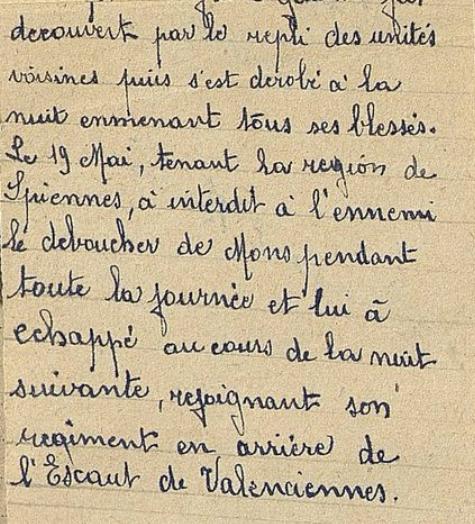 decouvert par le repli des unités
voisines puis s'est derobé à la
nuit enmenant tous ses blessés.
Le 19 Mai, tenant la region de
Spiennes, à interdit à l'ennemi
le deboucher de Mons pendant
toute la journée et lui à
echappé au cours de la nuit
suivante, rejoignant son
regiment en arriére de
l'Escaut de Valenciennes.